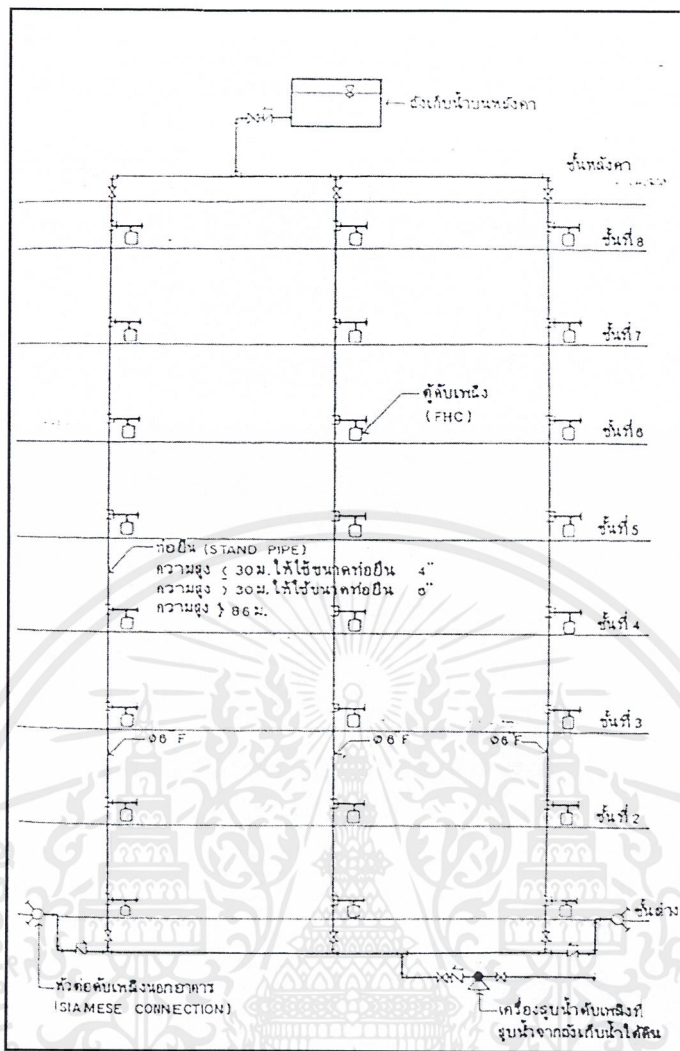 ถังเก็บน้ำบนหลังคา
ชั้นหลังคา
ชั้นที่ 8
ชั้นที่ 7
ตู้ดับเพลิง
(FHC)
ชั้นที่ 6
ชั้นที่ 5
ท่อยืน (STAND PIPE)
ความสูง ≤ 30 ม. ให้ใช้ขนาดท่อยืน 4"
ความสูง > 30 ม. ให้ใช้ขนาดท่อยืน 6"
ความสูง 86 ม.
ชั้นที่ 4
ชั้นที่ 3
Ø6"F
Ø6"F
Ø6"F
ชั้นที่ 2
ชั้นล่าง
หัวต่อดับเพลิงนอกอาคาร
(SIAMESE CONNECTION)
เครื่องสูบน้ำดับเพลิงที่
สูบน้ำจากถังเก็บน้ำใต้ดิน